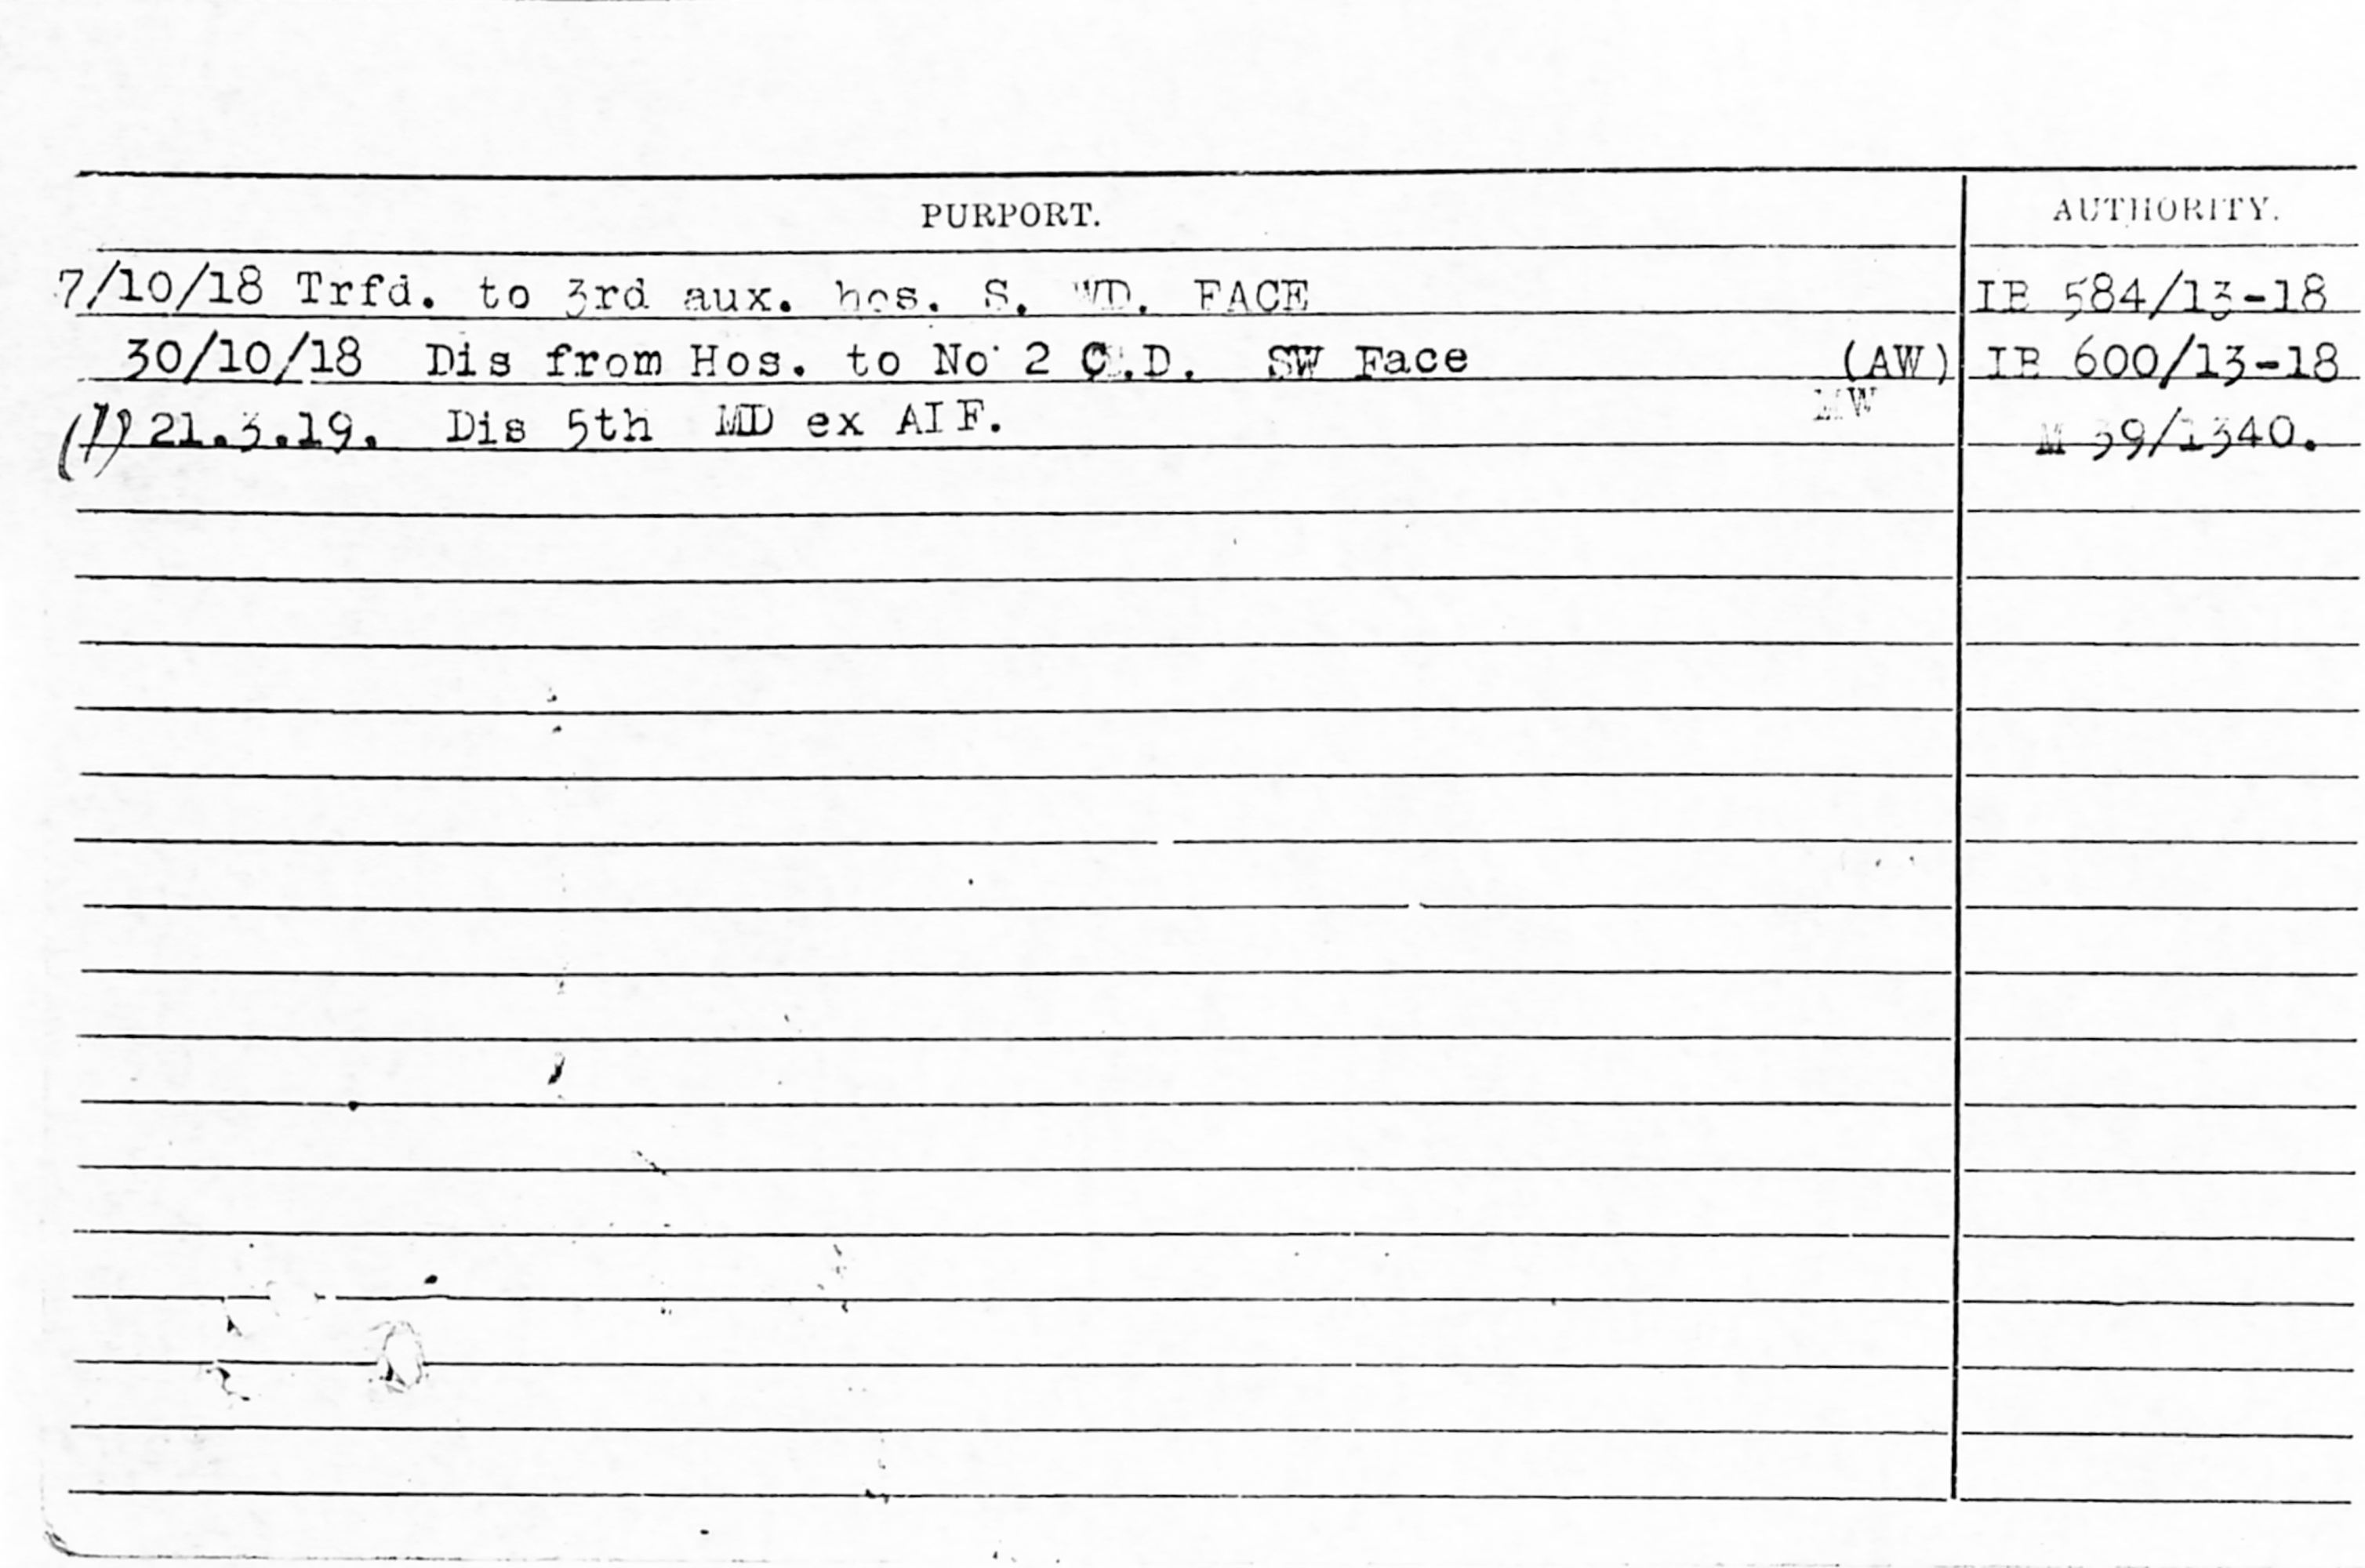 PURPORT. AUTHORITY.
7/10/18 Trfd. to 3rd aux. hos. S. WD. FACE IB 584/13-18
30/10/18 Dis from Hos. to No 2 C.D. SW Face (AW) IB 600/13-18
(1) 21.3.19. Dis 5th MD ex AIF. MW M 39/1340.